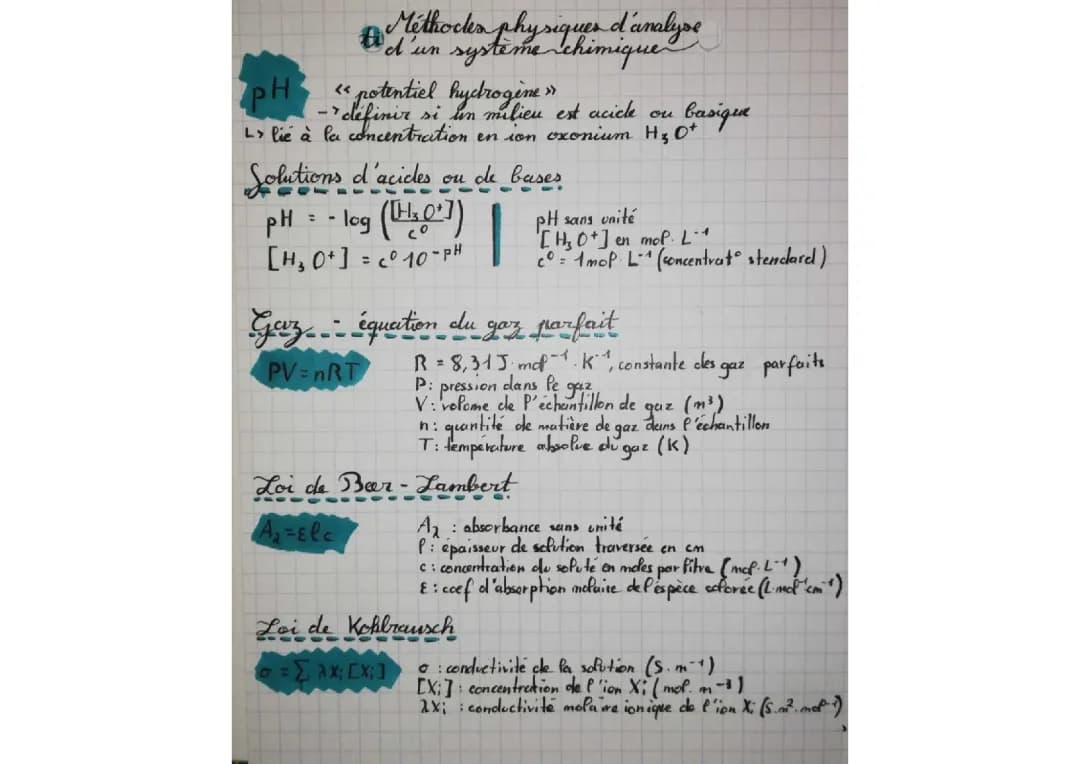 Méthodes physiques d'analyse
d'un système chimique
pH « potentiel hydrogène »
-> définir si un milieu est acide ou basique
↳ lié à la concentration en ion oxonium H₃O⁺
Solutions d'acides ou de bases
pH = - log ([H₃O⁺]/c⁰)
[H₃O⁺] = c⁰ 10⁻ᵖᴴ
pH sans unité
[H₃O⁺] en mol. L⁻¹
c⁰ = 1 mol. L⁻¹ (concentrat° standard)
Gaz - équation du gaz parfait
PV = nRT
R = 8,31 J. mol⁻¹. K⁻¹, constante des gaz parfaits
P : pression dans le gaz
V : volume de l'échantillon de gaz (m³)
n : quantité de matière de gaz dans l'échantillon
T : température absolue du gaz (K)
Loi de Beer - Lambert
A_λ = εlc
A_λ : absorbance sans unité
l : épaisseur de solution traversée en cm
c : concentration du soluté en moles par litre (mol. L⁻¹)
ε : coef d'absorption molaire de l'espèce colorée (L.mol⁻¹cm⁻¹)
Loi de Kohlrausch
σ = ∑ λXᵢ [Xᵢ]
σ : conductivité de la solution (S. m⁻¹)
[Xᵢ] : concentration de l'ion Xᵢ (mol. m⁻³)
λXᵢ : conductivité molaire ionique de l'ion Xᵢ (S.m². mol⁻¹)